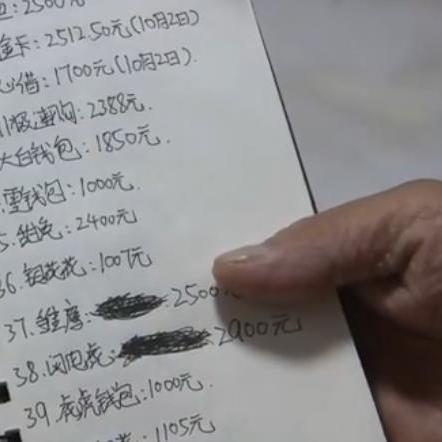 : 2500元
金卡: 2512.50元(10月2日)
心借: 1700元(10月2日).
购: 2388元.
大白钱包: 1850元.
雪钱包: 1000元.
5. 2400元
36. 花: 100元
37. 维摩: 2500元
38. 闪电虎: 2900元
39. 虎虎钱包: 1000元.
: 1105元